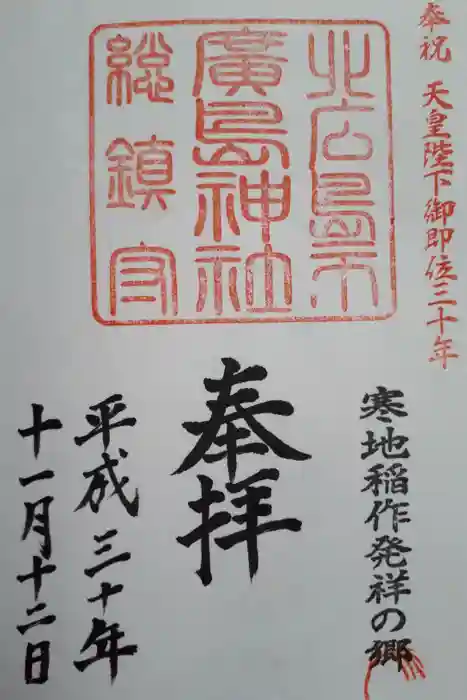 奉祝 天皇陛下御即位三十年
北広島市
廣島神社
総鎮守
寒地稲作発祥の郷
奉拝
平成三十年
十一月十二日